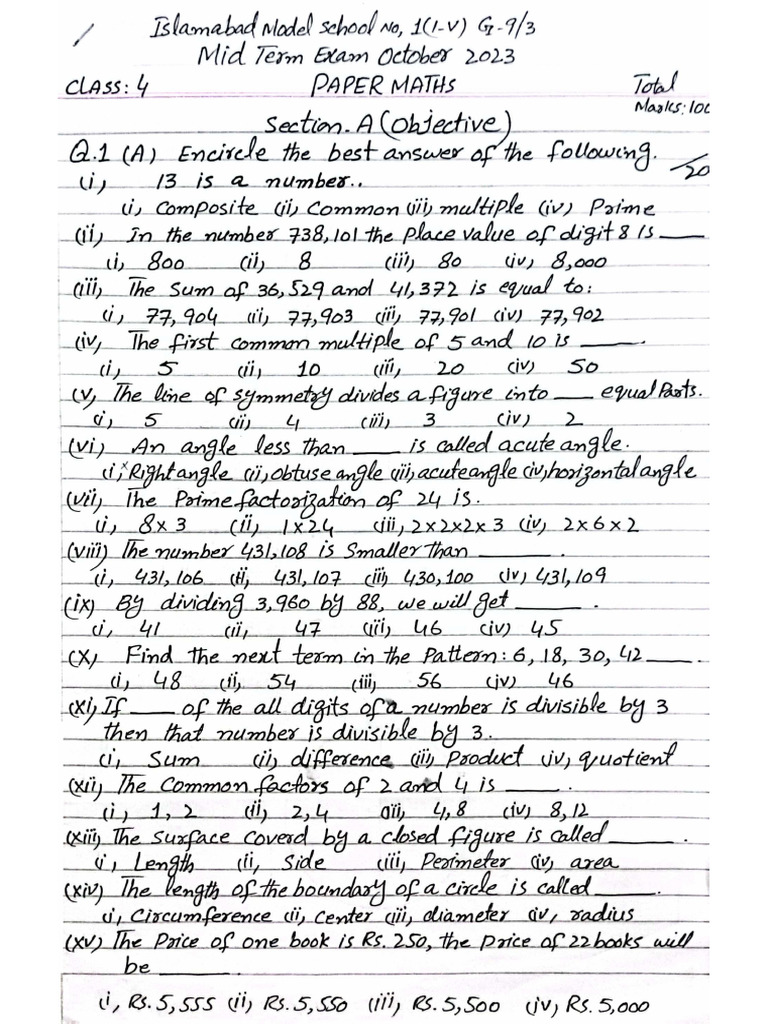 Islamabad Model School No, 1(I-V) G-9/3
Mid Term Exam October 2023
CLASS: 4 PAPER MATHS Total
Marks: 100
Section. A (Objective)
Q.1 (A) Encircle the best answer of the following. /20
(i) 13 is a number..
(i) Composite (ii) Common (iii) multiple (iv) Prime
(ii) In the number 738,101 the place value of digit 8 is ___
(i) 800 (ii) 8 (iii) 80 (iv) 8,000
(iii) The Sum of 36,529 and 41,372 is equal to:
(i) 77,904 (ii) 77,903 (iii) 77,901 (iv) 77,902
(iv) The first common multiple of 5 and 10 is ___.
(i) 5 (ii) 10 (iii) 20 (iv) 50
(v) The line of symmetry divides a figure into ___ equal Parts.
(i) 5 (ii) 4 (iii) 3 (iv) 2
(vi) An angle less than ___ is called acute angle.
(i) Right angle (ii) obtuse angle (iii) acute angle (iv) horizontal angle
(vii) The Prime factorization of 24 is.
(i) 8×3 (ii) 1×24 (iii) 2×2×2×3 (iv) 2×6×2
(viii) The number 431,108 is Smaller than ___.
(i) 431,106 (ii) 431,107 (iii) 430,100 (iv) 431,109
(ix) By dividing 3,960 by 88, we will get ___.
(i) 41 (ii) 47 (iii) 46 (iv) 45
(x) Find the next term in the Pattern: 6, 18, 30, 42 ___.
(i) 48 (ii) 54 (iii) 56 (iv) 46
(xi) If ___ of the all digits of a number is divisible by 3
then that number is divisible by 3.
(i) Sum (ii) difference (iii) Product (iv) quotient
(xii) The Common factors of 2 and 4 is ___.
(i) 1, 2 (ii) 2,4 (iii) 4,8 (iv) 8,12
(xiii) The Surface coverd by a closed figure is called ___.
(i) Length (ii) Side (iii) Perimeter (iv) area
(xiv) The length of the boundary of a circle is called ___.
(i) Circumference (ii) center (iii) diameter (iv) radius
(xv) The Price of one book is Rs. 250, the Price of 22 books will
be ___.
(i) Rs. 5,555 (ii) Rs. 5,550 (iii) Rs. 5,500 (iv) Rs. 5,000